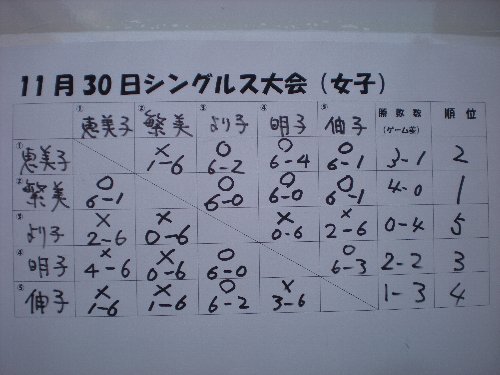 11月30日シングルス大会（女子）
① 恵美子 ② 繁美 ③ より子 ④ 明子 ⑤ 伸子 勝敗数 (ゲーム率) 順位
① 恵美子 × 1-6 ○ 6-2 ○ 6-4 ○ 6-1 3-1 2
② 繁美 ○ 6-1 ○ 6-0 ○ 6-0 ○ 6-1 4-0 1
③ より子 × 2-6 × 0-6 × 0-6 × 2-6 0-4 5
④ 明子 × 4-6 × 0-6 ○ 6-0 ○ 6-3 2-2 3
⑤ 伸子 × 1-6 × 1-6 ○ 6-2 × 3-6 1-3 4